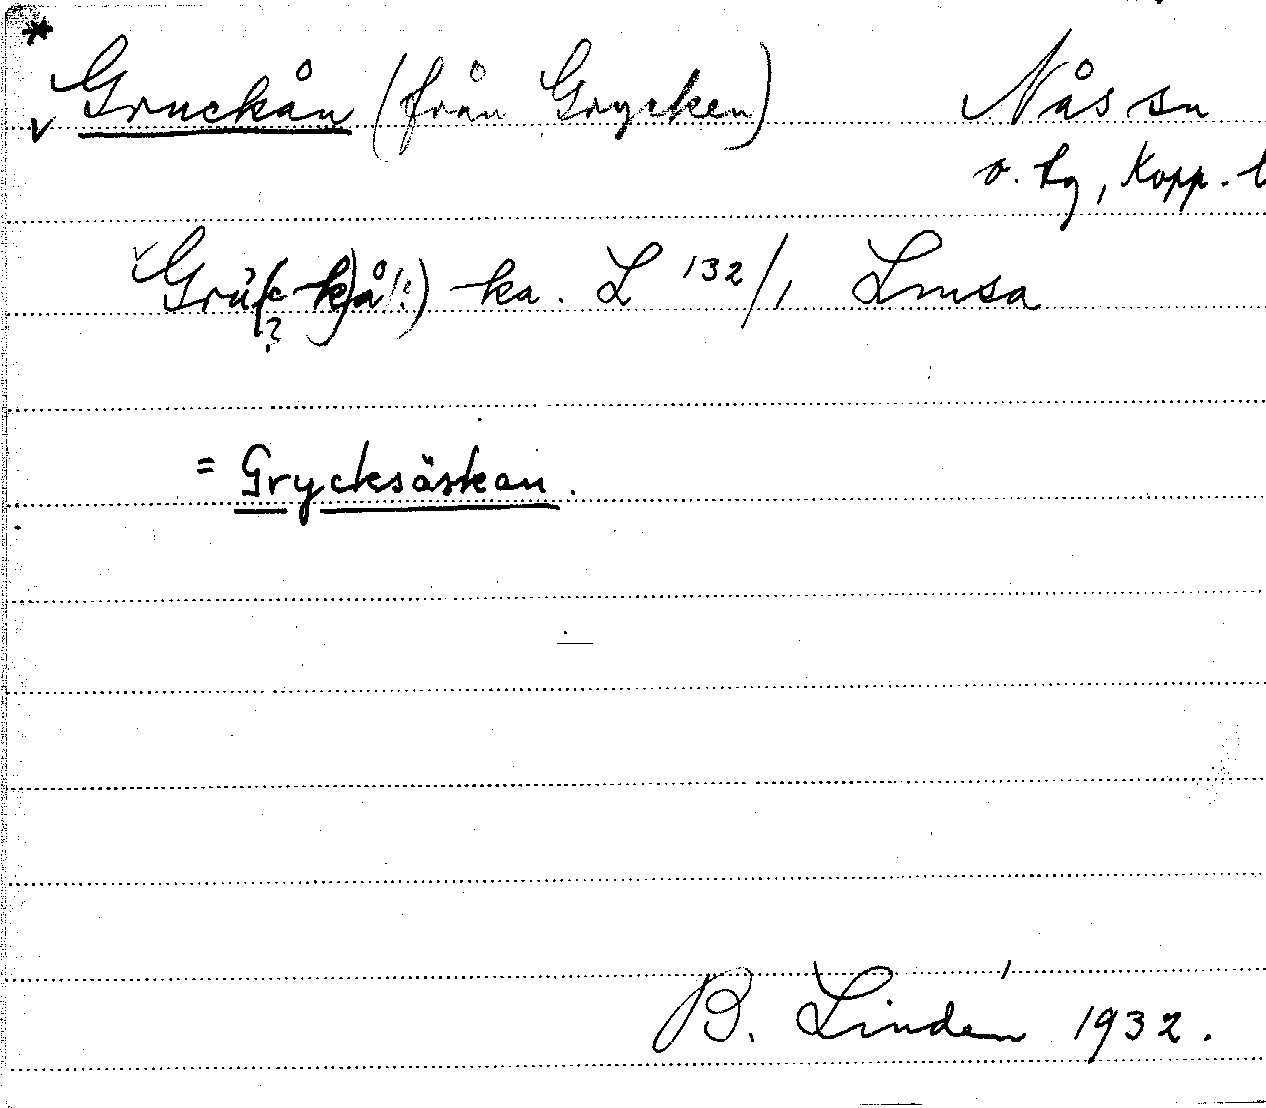 * Gruckån (från Grycken) Nås sn
v. bg, Kopp. l
Gru(c k)å(:) ka. L 132/1 Lmsa
?
= Grycksåskan.
B. Lindén 1932.